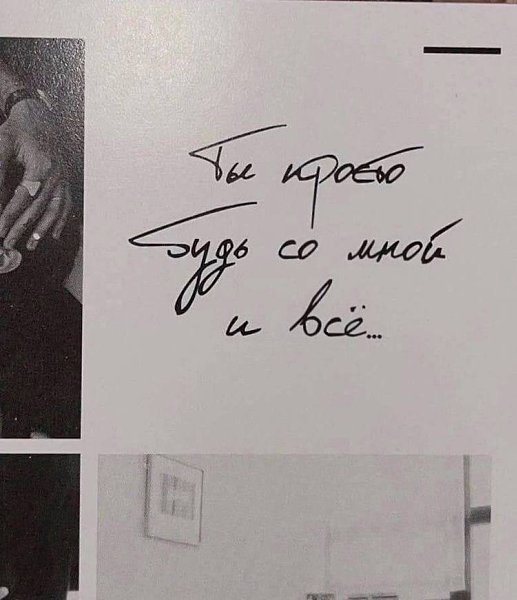 Ты просто
будь со мной
и всё...